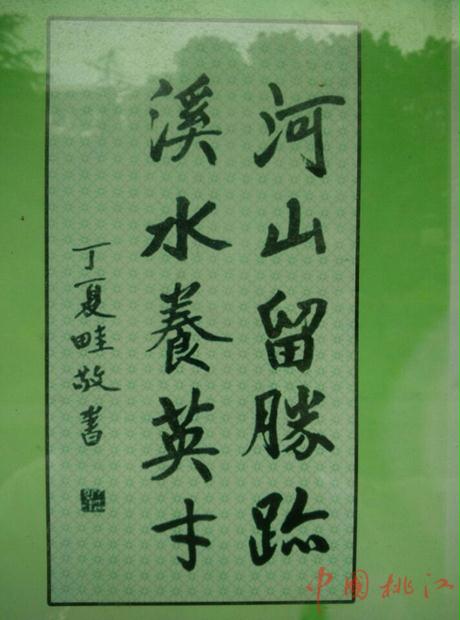 河山留勝跡
溪水養英才
丁夏畦敬書
中國桃江